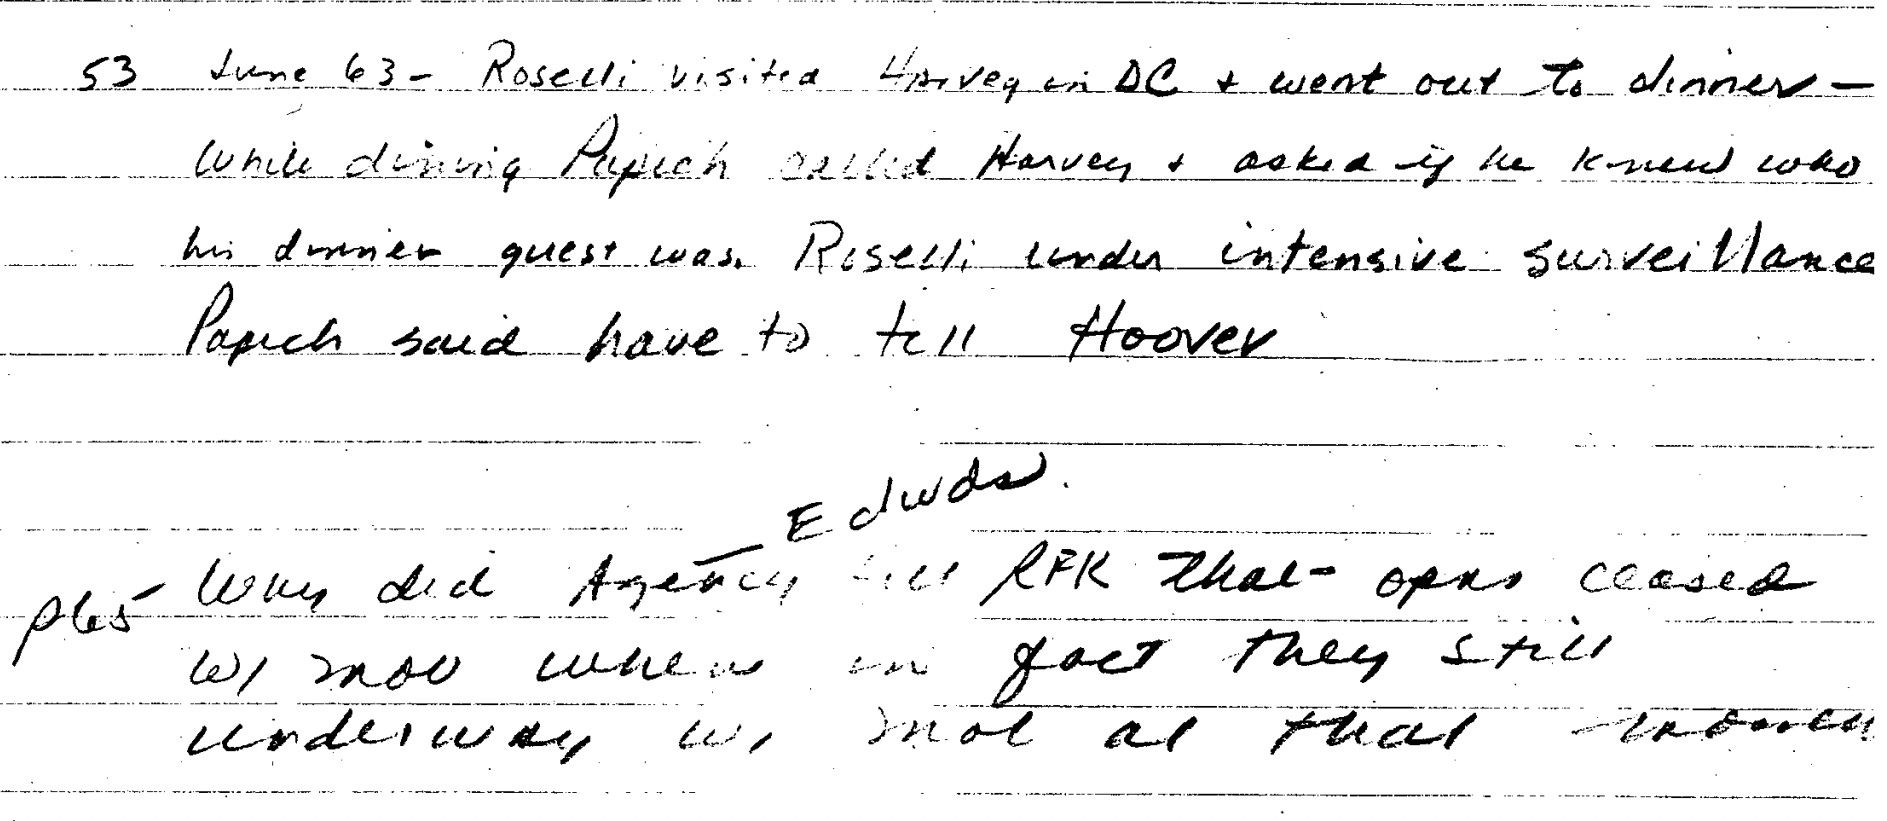 53 June 63 - Roselli visited Harvey in DC + went out to dinner -
While dining Papich called Harvey + asked if he knew who
his dinner guest was. Roselli under intensive surveillance
Papich said have to tell Hoover
Edwds.
p65 Why did Agency tell RFK that opns ceased
w/ when in fact they still
underway w/ at that